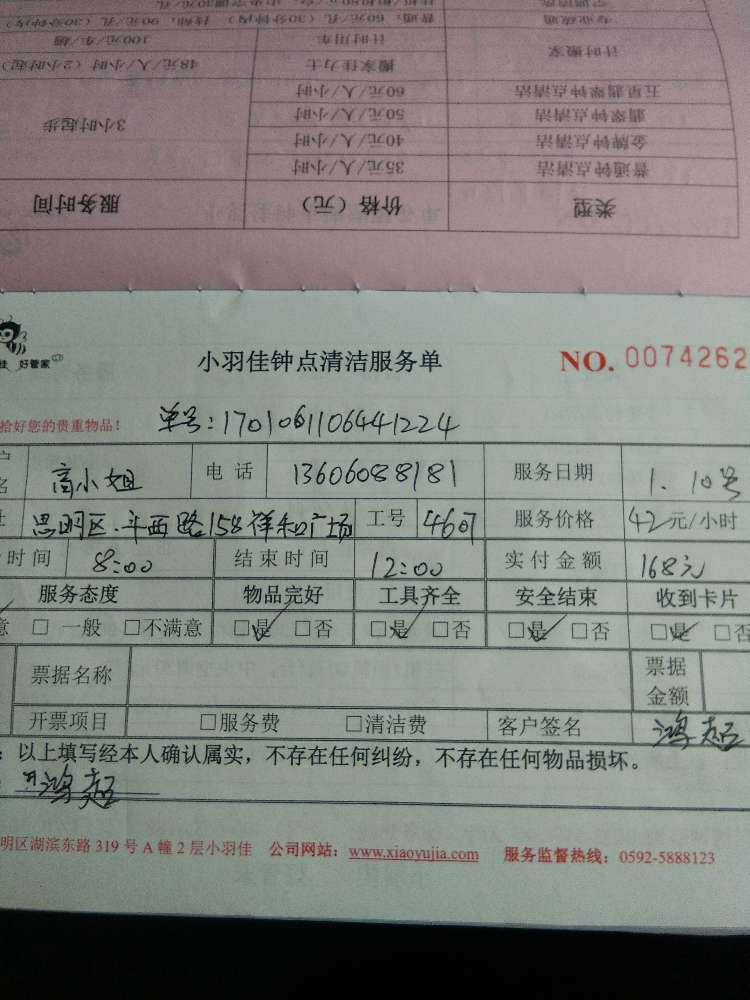 专业疏通 普通：60元/孔（30分钟内） 特种：90元/孔（30分钟内）
计时搬家 计时用车 100元/车/趟
搬家佳力士 48元/人/小时（2小时起）
五星翡翠钟点清洁 60元/人/小时
翡翠钟点清洁 50元/人/小时 3小时起步
金牌钟点清洁 40元/人/小时
普通钟点清洁 35元/人/小时
类型 价格（元） 服务时间
佳 好管家
小羽佳钟点清洁服务单 NO. 0074262
拾好您的贵重物品！ 单号：1701061106441224
户 名 高小姐 电话 13606088181 服务日期 1.10号
址 思明区 斗西路158祥和广场 工号 4607 服务价格 42元/小时
时间 8:00 结束时间 12:00 实付金额 168元
服务态度 物品完好 工具齐全 安全结束 收到卡片
意 □一般 □不满意 □是 □否 □是 □否 □是 □否 □是 □
票据名称 票据金额
开票项目 □服务费 □清洁费 客户签名 鸿超
：以上填写经本人确认属实，不存在任何纠纷，不存在任何物品损坏。
鸿超
明区湖滨东路 319 号 A 幢 2 层小羽佳 公司网站：www.xiaoyujia.com 服务监督热线：0592-5888123